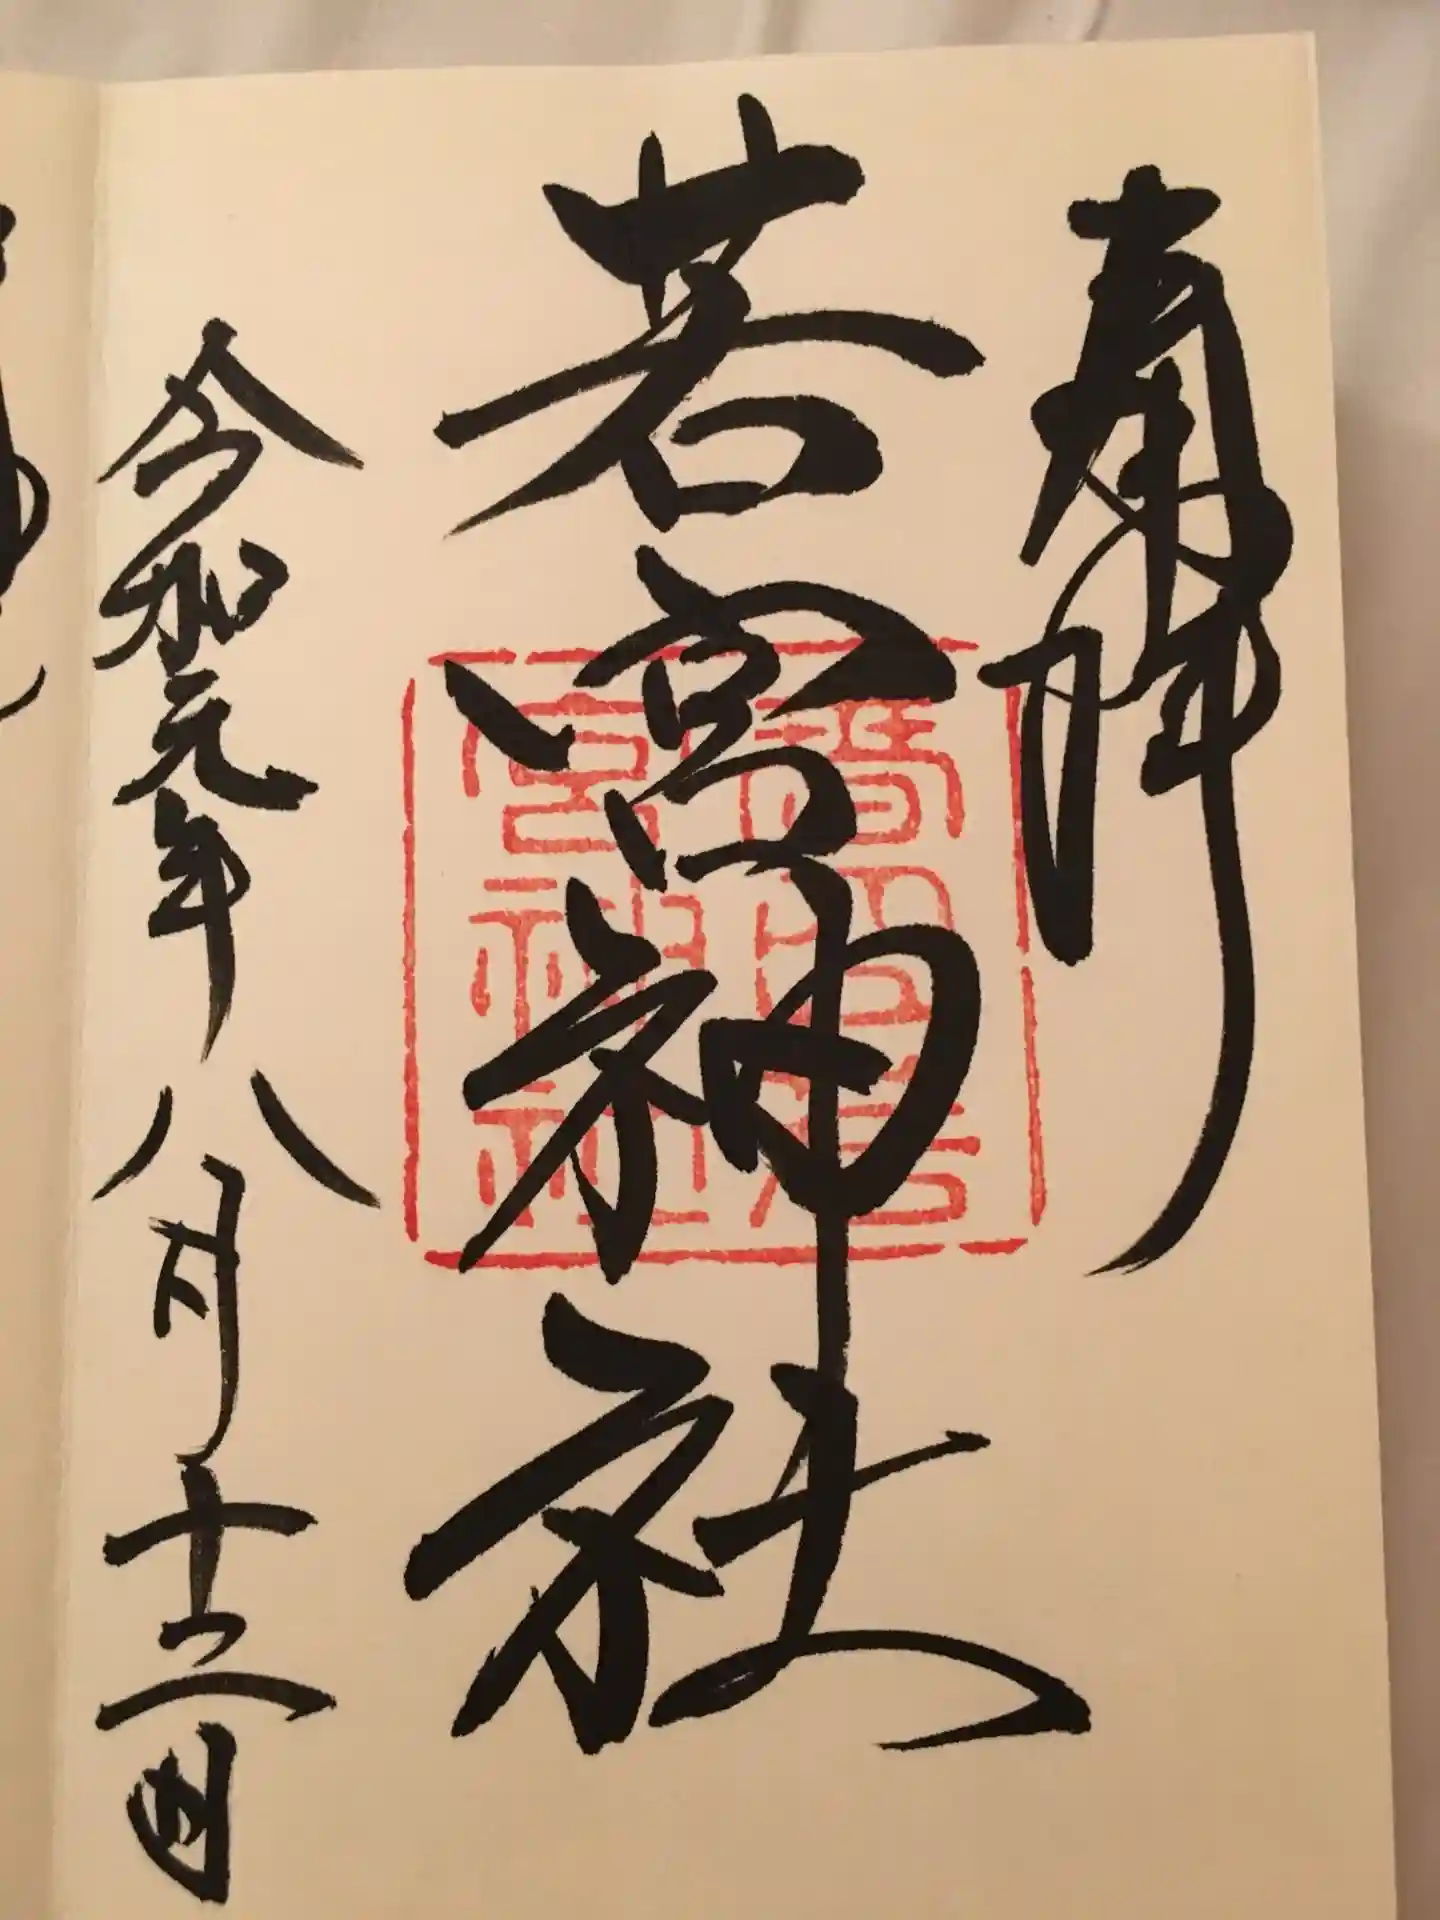 奉拝
若宮神社
令和元年八月十二日
宮神社